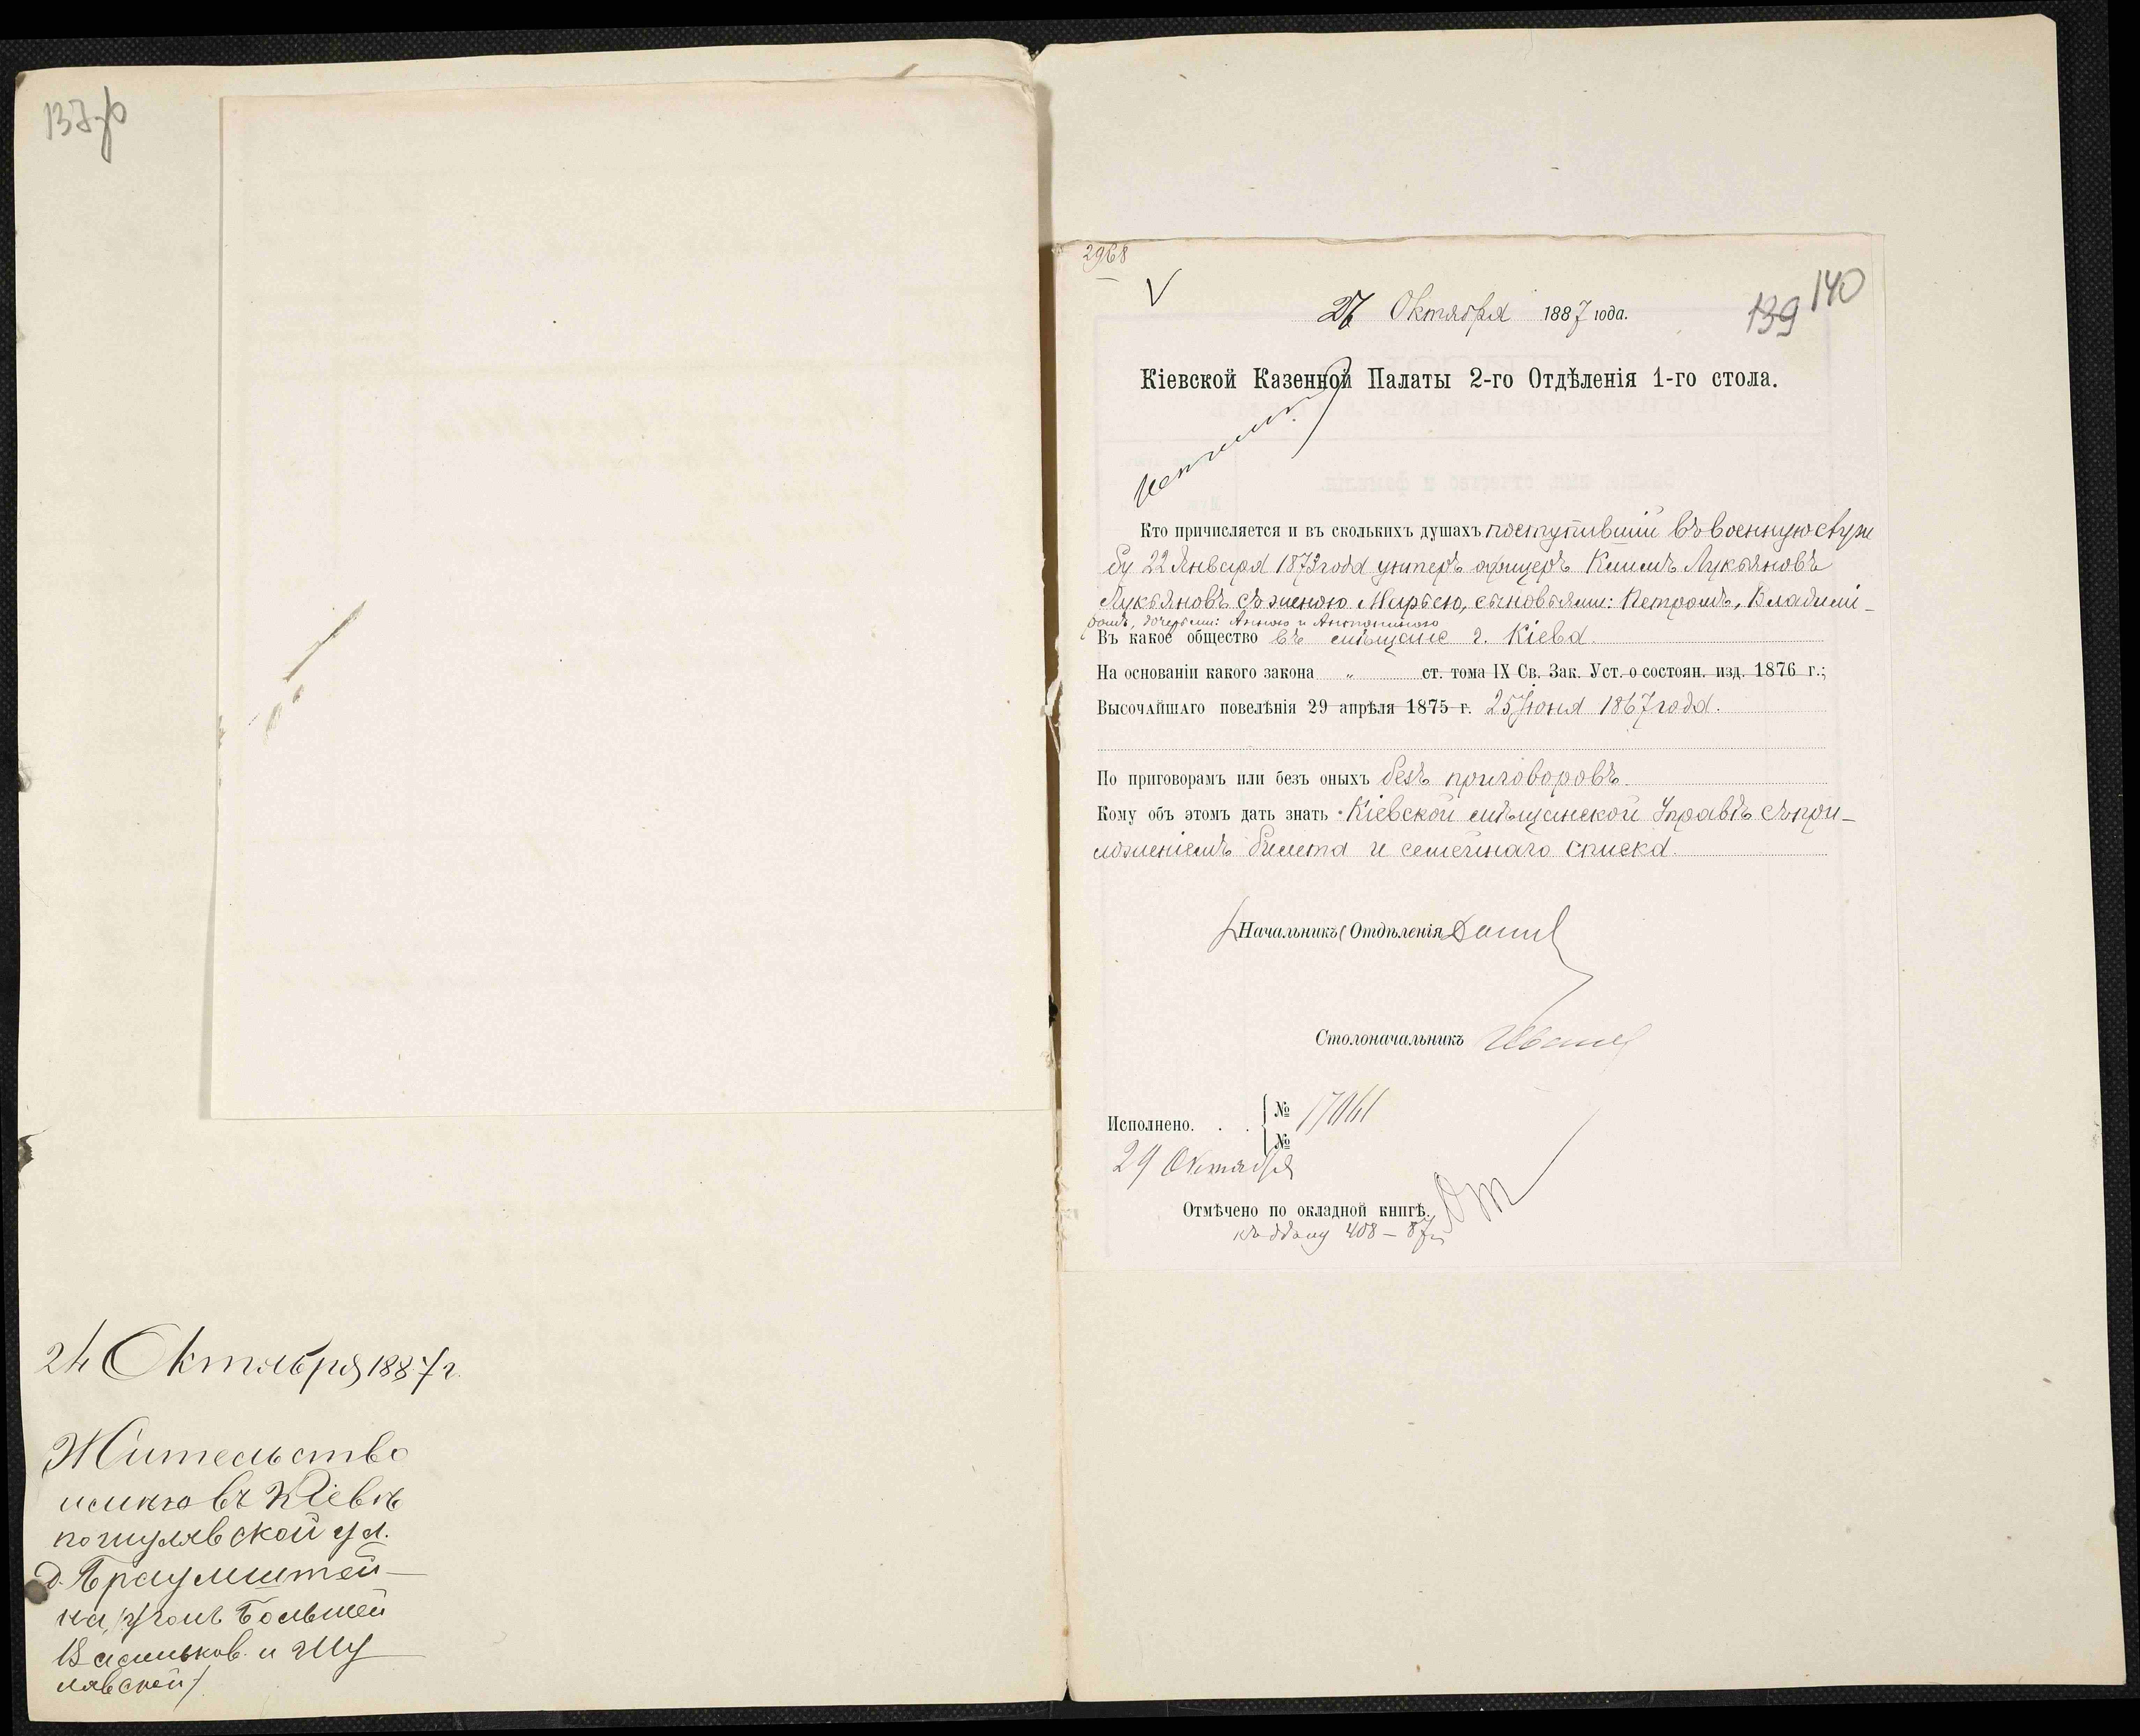 24 Октября 1887 г.
Жительство
имѣю въ Кіевѣ
по Шулявской ул.
д. Браумштей-
на, /уголъ Большей
Васильков. и Шу
лявской/
2968
26 Октября 1887 года.
139 140
Кіевской Казенной Палаты 2-го Отдѣленія 1-го стола.
Кто причисляется и въ сколькихъ душахъ поступившій въ военную служ
бу 22 Января 1873 года унтеръ офицеръ Климъ Лукьяновъ
Лукьяновъ съ женою Марьею, сыновьями: Петромъ, Владимі-
ромъ, дочерьми: Анною и Антониною
Въ какое общество въ мѣщане г. Кіева.
На основаніи какого закона „ ст. тома IX Св. Зак. Уст. о состоян. изд. 1876 г.;
Высочайшаго повелѣнія 29 апрѣля 1875 г. 25 Іюня 1867 года.
По приговорамъ или безъ оныхъ безъ приговоровъ.
Кому объ этомъ дать знать Кіевской мѣщанской Управѣ съ при-
ложеніемъ билета и семейнаго списка.
Начальникъ Отдѣленія
Столоначальникъ
Исполнено. . . { № 17061
№
29 Октября
Отмѣчено по окладной книгѣ.
408 – 87 г.